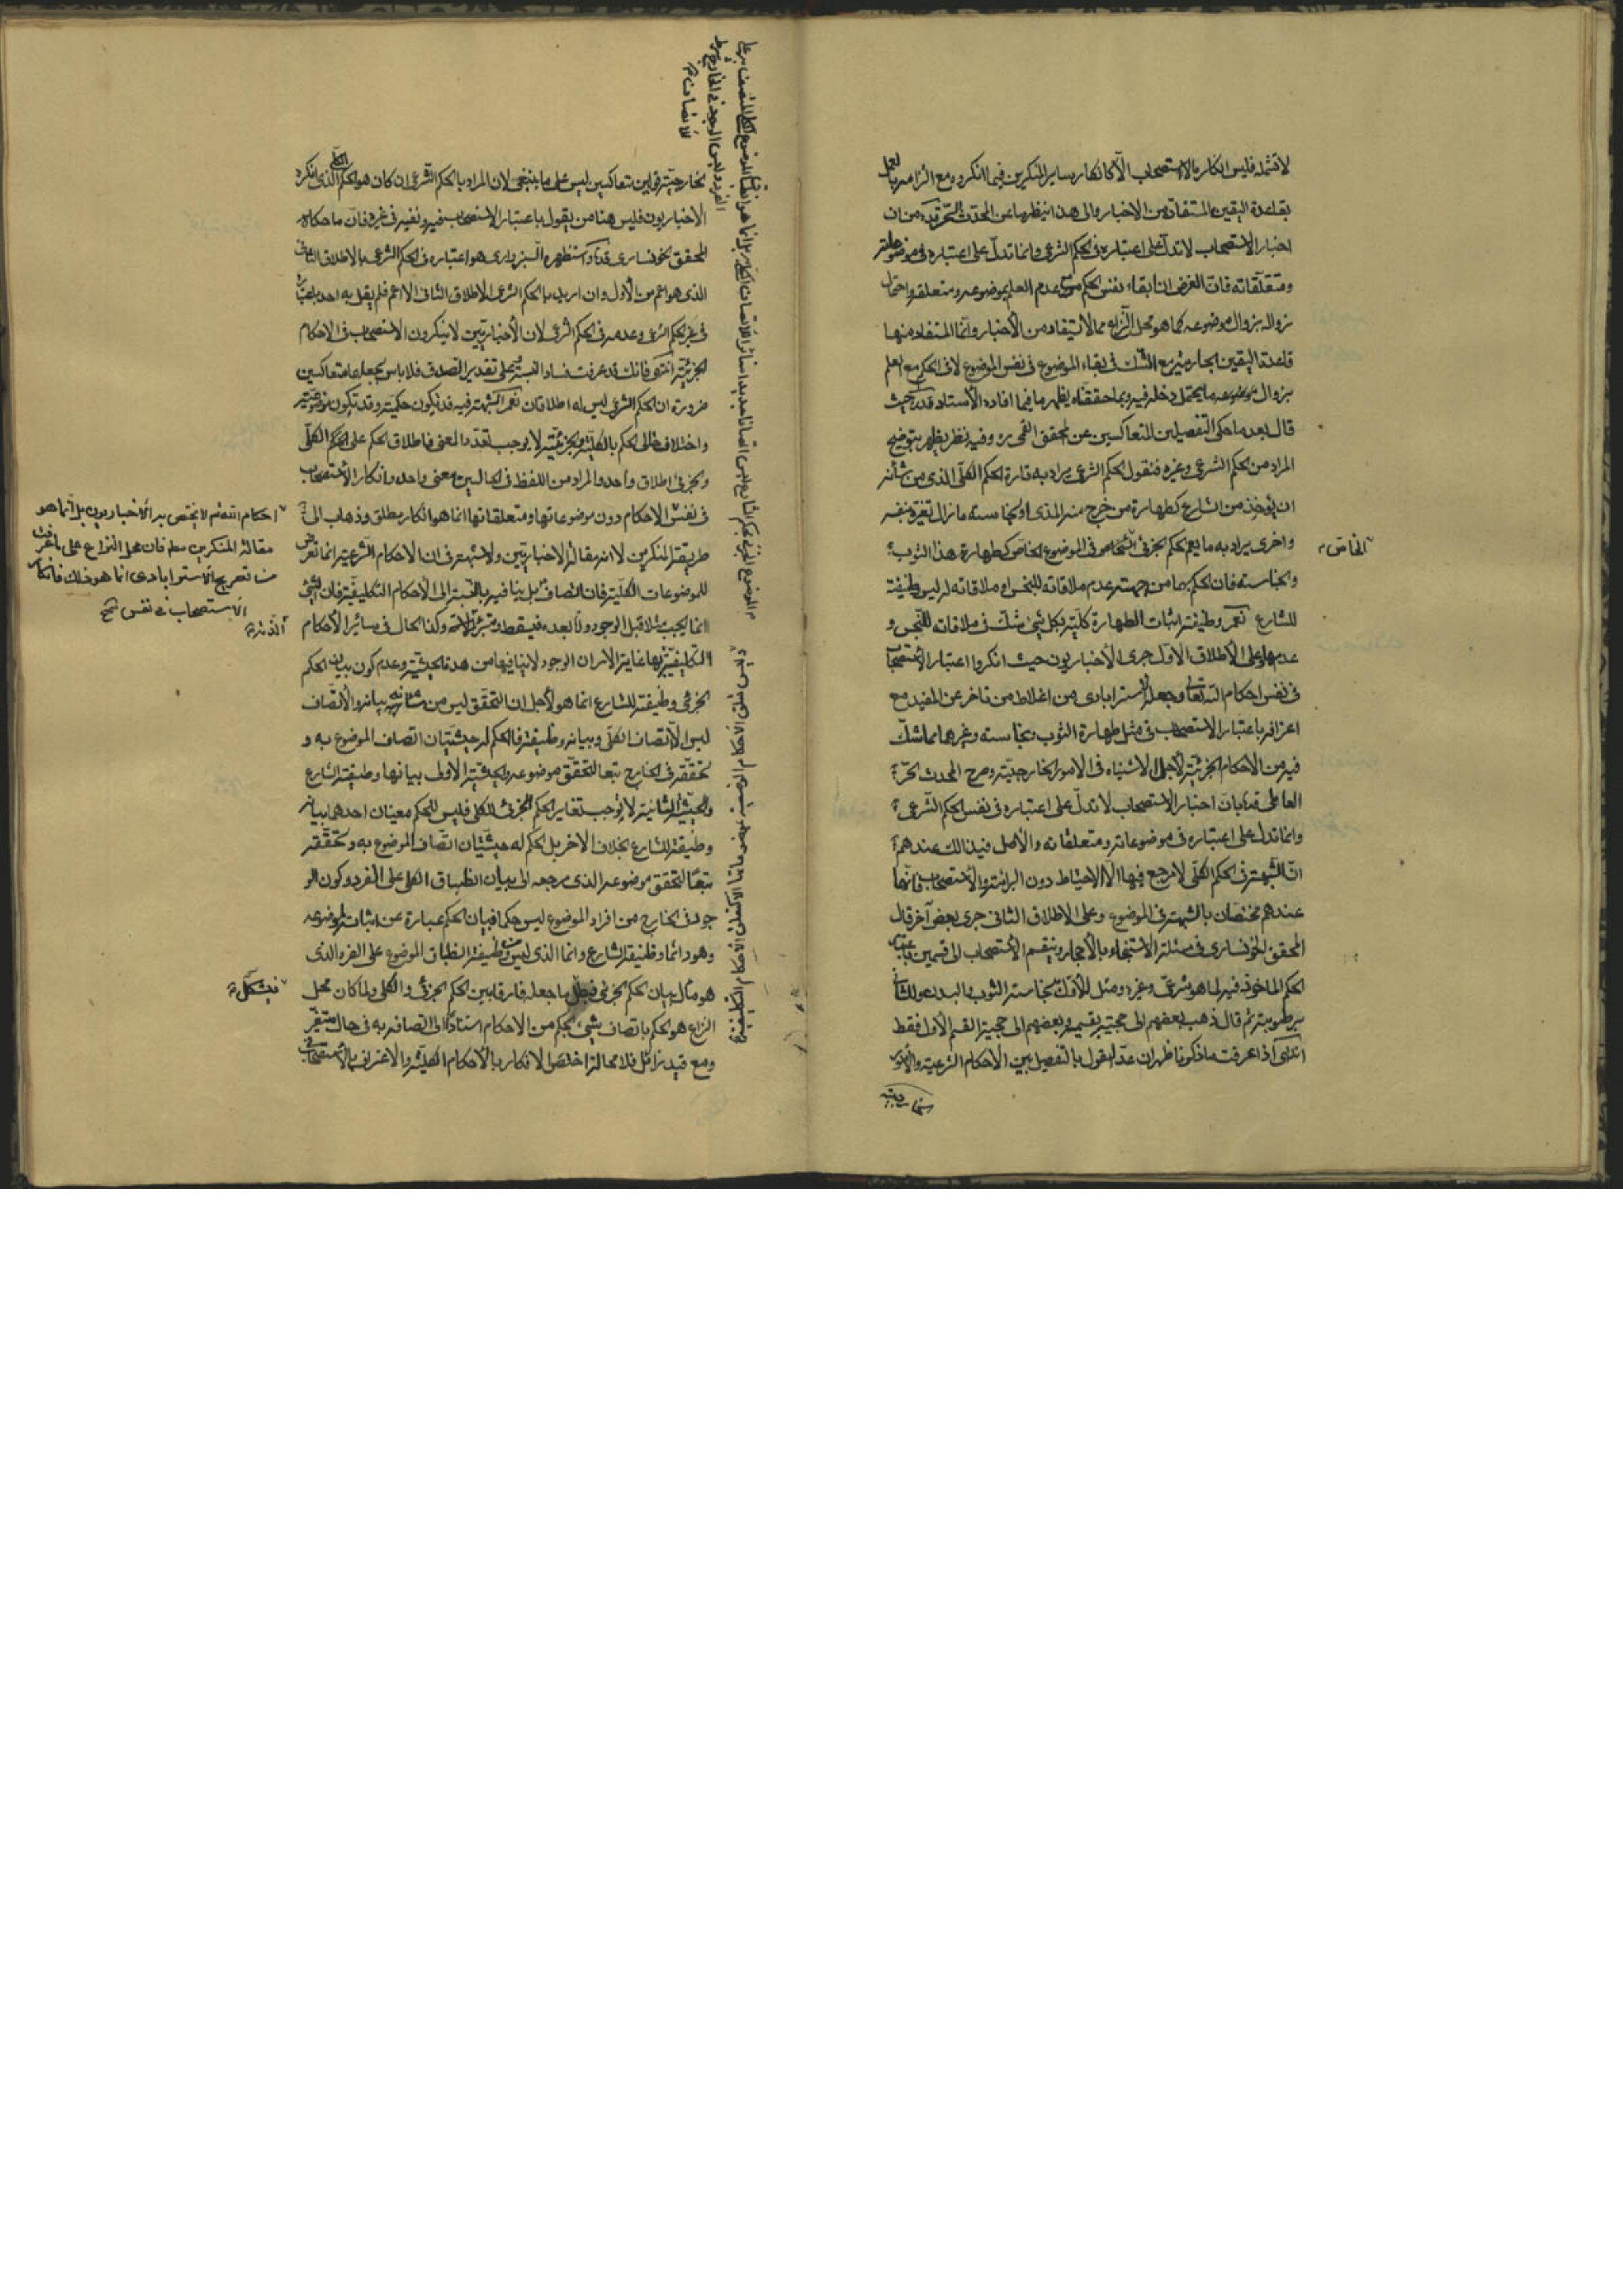 لا تثمله فليس انكاره بالاستصحاب الا كانكار ساير المنكرين فيما انكروه مع التزامه بالعمل
بقاعدة اليقين المستفادة من الاخبار والى هذا ينظر ما عن المحدث الحر قده من ان
اخبار الاستصحاب لا تدل على اعتباره في الحكم الشرعي وانما تدل على اعتباره في موضوعاته
ومتعلقاته فان الغرض ان ابقاء نفس الحكم مع عدم العلم بموضوعه ومتعلقه واحتمال
زواله بزوال موضوعه كما هو محل النزاع مما لا يستفاد من الأخبار وانما المستفاد منها
قاعدة اليقين الجارية مع الشك في بقاء الموضوع في نفس الموضوع لا في الحكم مع العلم
بزوال موضوعه ما يحتمل دخله فيه وبما حققناه يظهر ما فيما افاده الأستاد قده حيث
قال بعد ما حكى التفصيلين المتعاكسين عن المحقق القمي ره وفيه نظر يظهر بتوضيح
المراد من الحكم الشرعي وغيره فنقول الحكم الشرعي يراد به تارة الحكم الكلي الذي من شأنه
ان يؤخذ من الشارع كطهارة من خرج منه المذي او نجاسة ما زال تغيره بنفسه
واخرى يراد به ما يعم الحكم الجزئي الخاص في الموضوع الخاص كطهارة هذا الثوب
ونجاسته فان الحكم بهما من جهة عدم ملاقاته للنجس او ملاقاته له ليس وظيفة
للشارع نعم وظيفته اثبات الطهارة كلية بكل شيء شك في ملاقاته للنجس و
عدمها وعلى الأطلاق الاول جرى الأخباريون حيث انكروا اعتبار الاستصحاب
في نفس احكام الله تعالى وجعله الاسترابادي من اغلاط من تاخر عن المفيد مع
اعترافه باعتبار الاستصحاب في مثل طهارة الثوب ونجاسته وغيرهما مما شك
فيه من الأحكام الجزئية لأجل الاشتباه في الامور الخارجية وصرح المحدث الحر
العاملي قده بان اخبار الاستصحاب لا تدل على اعتباره في نفس الحكم الشرعي
وانما تدل على اعتباره في موضوعاته ومتعلقاته والأصل في ذلك عندهم
ان الشبهة في الحكم الكلي لا مرجع فيها الا الاحتياط دون البرائة والاستصحاب فانهما
عندهم مختصان بالشبهة في الموضوع وعلى الاطلاق الثاني جرى بعض آخر قال
المحقق الخونساري في مسئلة الاستنجاء بالأحجار وينقسم الاستصحاب الى قسمين باعتبار
الحكم الماخوذ فيه لما هو شرعي وغيره ومثل للأول بنجاسة الثوب والبدن وللثاني
برطوبته ثم قال ذهب بعضهم الى حجيته بقسميه وبعضهم الى حجية القسم الأول فقط
انتهى اذا عرفت ما ذكرنا ظهر ان عد القول بالتفصيل بين الأحكام الشرعية والأمور
الخاص
الخارجية قولين متعاكسين ليس على ما ينبغي لان المراد بالحكم الشرعي ان كان هو الحكم الكلي الذي انكره
الاخباريون فليس هنا من يقول باعتبار الاستصحاب فيه ونفيه في غيره فان ما حكاه
المحقق الخونساري قده واستظهره السبزواري هو اعتباره في الحكم الشرعي بالاطلاق الثاني
الذي هو اعم من الأول وان اريد بالحكم الشرعي الاطلاق الثاني الاعم فلم يقل به احد باعتباره
في غير الحكم الشرعي وعدمه في الحكم الشرعي لان الأخباريين لا ينكرون الاستصحاب في الاحكام
الجزئية انتهى فانك قد عرفت فساد النسبة وعلى تقدير الصدق فلا باس بجعلها متعاكسين
ضرورة ان الحكم الشرعي ليس له اطلاقان نعم الشبهة فيه قد تكون حكمية وقد تكون موضوعية
واختلاف حال الحكم بالكلية والجزئية لا يوجب تعدد المعنى فاطلاق الحكم على الحكم الكلي
والجزئي اطلاق واحد والمراد من اللفظ في الحالين معنى واحد وانكار الاستصحاب
في نفس الاحكام دون موضوعاتها ومتعلقاتها انما هو انكار مطلق وذهاب الى
طريقة المنكرين لا انه مقالة الاخباريين ولا شبهة في ان الاحكام الشرعية انما تعرض
للموضوعات الكلية فان اتصاف بل ينافيه بالنسبة الى الأحكام التكليفية فان الشيء
انما يجب مثلا قبل الوجود واما بعده فيسقط وكذا الحال في سائر الأحكام
التكليفية غاية الامر ان الوجود لا ينافيها من هذه الحيثية وعدم كون بيان الحكم
الجزئي وظيفة للشارع انما هو لأجل ان التحقق ليس من شانه بيانه والاتصاف
ليس الا اتصاف الكلي وبيانه وظيفته فالحكم له حيثيتان اتصاف الموضوع به و
تحققه في الخارج تبعا لتحقق موضوعه والحيثية الأولى بيانها وظيفة الشارع
والحيثية الثانية لا توجب تغاير الحكم الجزئي للكلي فليس للحكم معنيان احدهما بيانه
وظيفة للشارع بخلاف الاخر بل الحكم له حيثيتان اتصاف الموضوع به وتحققه
تبعا لتحقق موضوعه الذي مرجعه الى بيان انطباق الكلي على الفرد وكون المو
جود في الخارج من افراد الموضوع ليس حكما فبيان الحكم عبارة عن اثباته لموضوعه
وهو دائما وظيفة الشارع وانما الذي ليس من وظيفته انطباق الموضوع على الفرد الذي
هو مآل بيان الحكم الجزئي فجعل ما جعله فارقا بين الحكم الجزئي والكلي ولما كان محل
النزاع هو الحكم باتصاف شيء بحكم من الأحكام استنادا الى اتصافه به في حال متغير
ومع قيد زائل فلا محالة اختص الانكار بالأحكام الكلية والاعتراف بالاستصحاب
احكام الله تم لا يختص به الأخباريون بل انما هو
مقالة المنكرين مطلقا فان محل النزاع على ما عرفت
من تصريح الاسترابادي انما هو ذلك فانكار
الاستصحاب في نفس